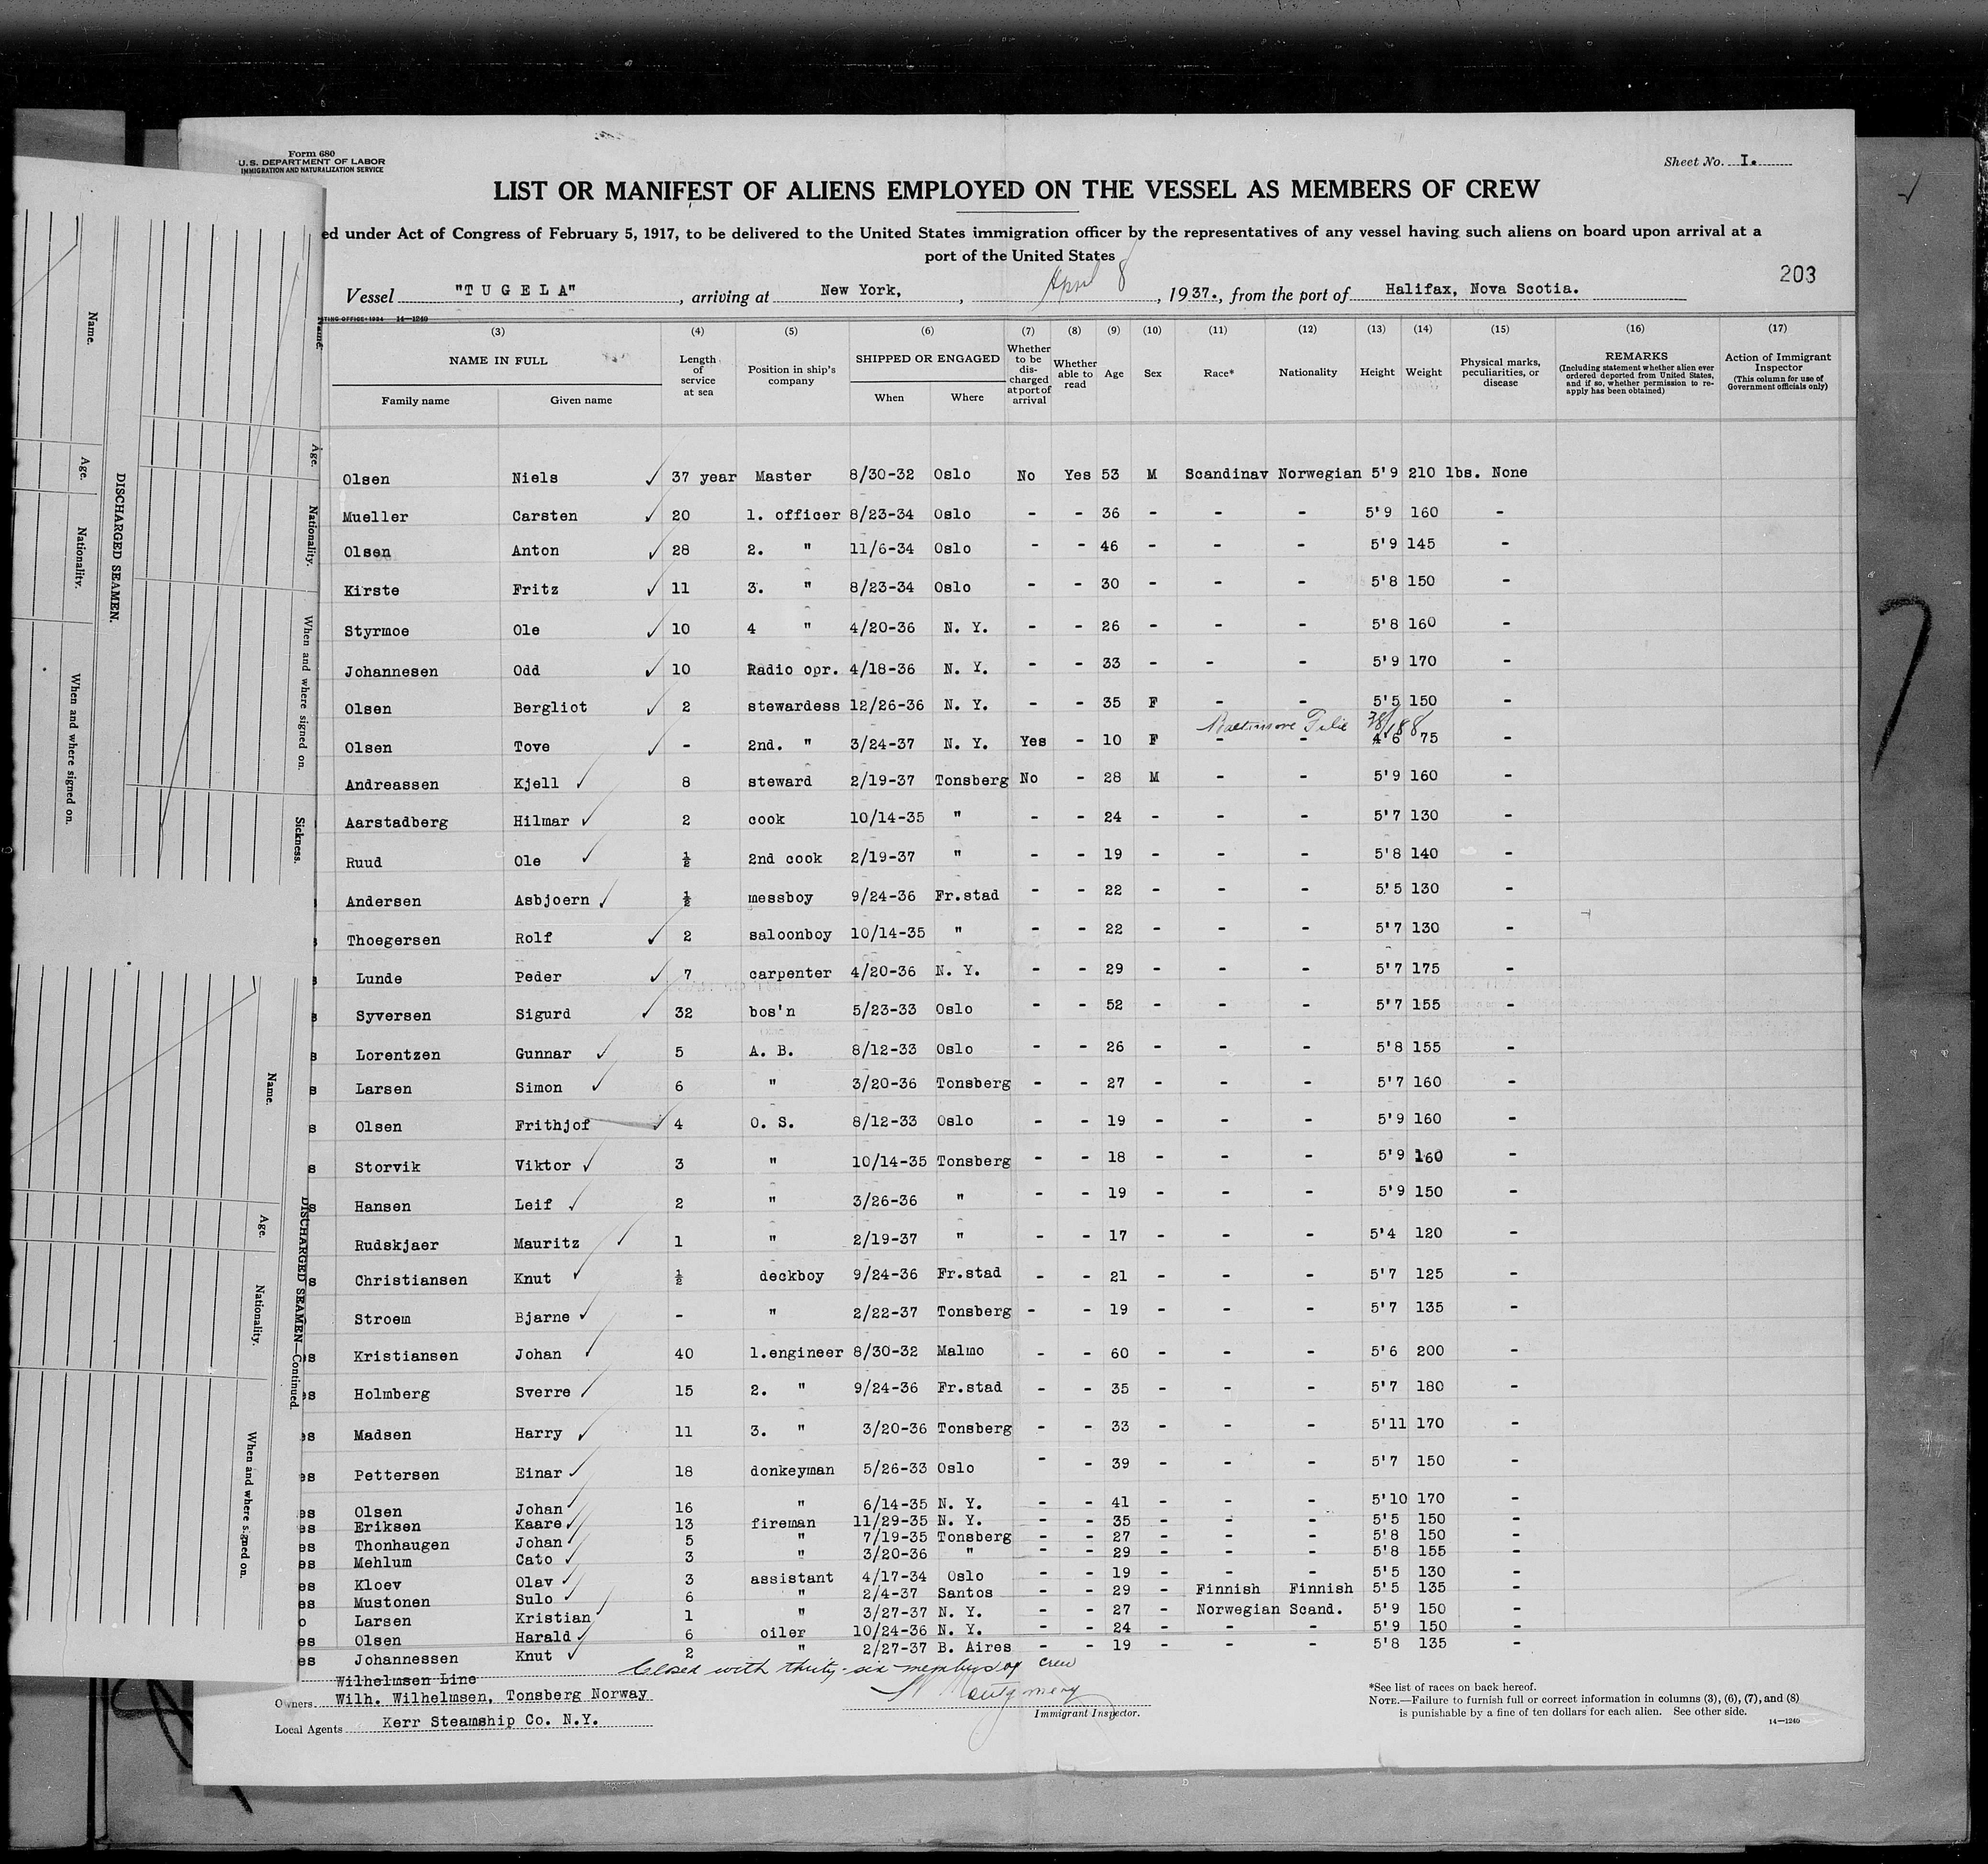 Form 680
U. S. DEPARTMENT OF LABOR
IMMIGRATION AND NATURALIZATION SERVICE
Sheet No. I.
LIST OR MANIFEST OF ALIENS EMPLOYED ON THE VESSEL AS MEMBERS OF CREW
ed under Act of Congress of February 5, 1917, to be delivered to the United States immigration officer by the representatives of any vessel having such aliens on board upon arrival at a
port of the United States
203
Vessel "T U G E L A", arriving at New York, April 8, 1937., from the port of Halifax, Nova Scotia.
TING OFFICE: 1934 14—1240
(3) (4) (5) (6) (7) (8) (9) (10) (11) (12) (13) (14) (15) (16) (17)
NAME IN FULL
Family name Given name
Length of service at sea
Position in ship's company
SHIPPED OR ENGAGED
When Where
Whether to be discharged at port of arrival
Whether able to read
Age
Sex
Race*
Nationality
Height
Weight
Physical marks, peculiarities, or disease
REMARKS
(Including statement whether alien ever ordered deported from United States, and if so, whether permission to reapply has been obtained)
Action of Immigrant Inspector
(This column for use of Government officials only)
Olsen Niels ✓ 37 year Master 8/30-32 Oslo No Yes 53 M Scandinav Norwegian 5'9 210 lbs. None
Mueller Carsten ✓ 20 1. officer 8/23-34 Oslo - - 36 - - - 5'9 160 -
Olsen Anton ✓ 28 2. " 11/6-34 Oslo - - 46 - - - 5'9 145 -
Kirste Fritz ✓ 11 3. " 8/23-34 Oslo - - 30 - - - 5'8 150 -
Styrmoe Ole ✓ 10 4 " 4/20-36 N. Y. - - 26 - - - 5'8 160 -
Johannesen Odd ✓ 10 Radio opr. 4/18-36 N. Y. - - 33 - - - 5'9 170 -
Olsen Bergliot ✓ 2 stewardess 12/26-36 N. Y. - - 35 F - - 5'5 150 -
Baltimore
Olsen Tove ✓ - 2nd. " 3/24-37 N. Y. Yes - 10 F - - 4'6 75
Andreassen Kjell ✓ 8 steward 2/19-37 Tonsberg No - 28 M - - 5'9 160 -
Aarstadberg Hilmar ✓ 2 cook 10/14-35 " - - 24 - - - 5'7 130 -
Ruud Ole ✓ ½ 2nd cook 2/19-37 " - - 19 - - - 5'8 140 -
Andersen Asbjoern ✓ ½ messboy 9/24-36 Fr.stad - - 22 - - - 5'5 130 -
Thoegersen Rolf ✓ 2 saloonboy 10/14-35 " - - 22 - - - 5'7 130 -
Lunde Peder ✓ 7 carpenter 4/20-36 N. Y. - - 29 - - - 5'7 175 -
Syversen Sigurd ✓ 32 bos'n 5/23-33 Oslo - - 52 - - - 5'7 155 -
Lorentzen Gunnar ✓ 5 A. B. 8/12-33 Oslo - - 26 - - - 5'8 155 -
Larsen Simon ✓ 6 " 3/20-36 Tonsberg - - 27 - - - 5'7 160 -
Olsen Frithjof ✓ 4 O. S. 8/12-33 Oslo - - 19 - - - 5'9 160 -
Storvik Viktor ✓ 3 " 10/14-35 Tonsberg - - 18 - - - 5'9 160 -
Hansen Leif ✓ 2 " 3/26-36 " - - 19 - - - 5'9 150 -
Rudskjaer Mauritz ✓ 1 " 2/19-37 " - - 17 - - - 5'4 120 -
Christiansen Knut ✓ ½ deckboy 9/24-36 Fr.stad - - 21 - - - 5'7 125 -
Stroem Bjarne ✓ - " 2/22-37 Tonsberg - - 19 - - - 5'7 135 -
Kristiansen Johan ✓ 40 1.engineer 8/30-32 Malmo - - 60 - - - 5'6 200 -
Holmberg Sverre ✓ 15 2. " 9/24-36 Fr.stad - - 35 - - - 5'7 180 -
Madsen Harry ✓ 11 3. " 3/20-36 Tonsberg - - 33 - - - 5'11 170 -
Pettersen Einar ✓ 18 donkeyman 5/26-33 Oslo - - 39 - - - 5'7 150 -
Olsen Johan ✓ 16 " 6/14-35 N. Y. - - 41 - - - 5'10 170 -
Eriksen Kaare ✓ 13 fireman 11/29-35 N. Y. - - 35 - - - 5'5 150 -
Thonhaugen Johan ✓ 5 " 7/19-35 Tonsberg - - 27 - - - 5'8 150 -
Mehlum Cato ✓ 3 " 3/20-36 " - - 29 - - - 5'8 155 -
Kloev Olav ✓ 3 assistant 4/17-34 Oslo - - 19 - - - 5'5 130 -
Mustonen Sulo ✓ 6 " 2/4-37 Santos - - 29 - Finnish Finnish 5'5 135 -
Larsen Kristian ✓ 1 " 3/27-37 N. Y. - - 27 - Norwegian Scand. 5'9 150 -
Olsen Harald ✓ 6 oiler 10/24-36 N. Y. - - 24 - - - 5'9 150 -
Johannessen Knut ✓ 2 " 2/27-37 B. Aires - - 19 - - - 5'8 135 -
Closed with thirty-six members of crew
Wilhelmsen Line
Owners Wilh. Wilhelmsen, Tonsberg Norway
Local Agents Kerr Steamship Co. N.Y.
Montgomery
Immigrant Inspector.
*See list of races on back hereof.
NOTE.—Failure to furnish full or correct information in columns (3), (6), (7), and (8)
is punishable by a fine of ten dollars for each alien. See other side.
14—1240
DISCHARGED SEAMEN.
Name.
Age.
Nationality.
When and where signed on.
Name.
Age.
Nationality.
When and where signed on.
Sickness.
DISCHARGED SEAMEN—Continued.
Name.
Age.
Nationality.
When and where signed on.